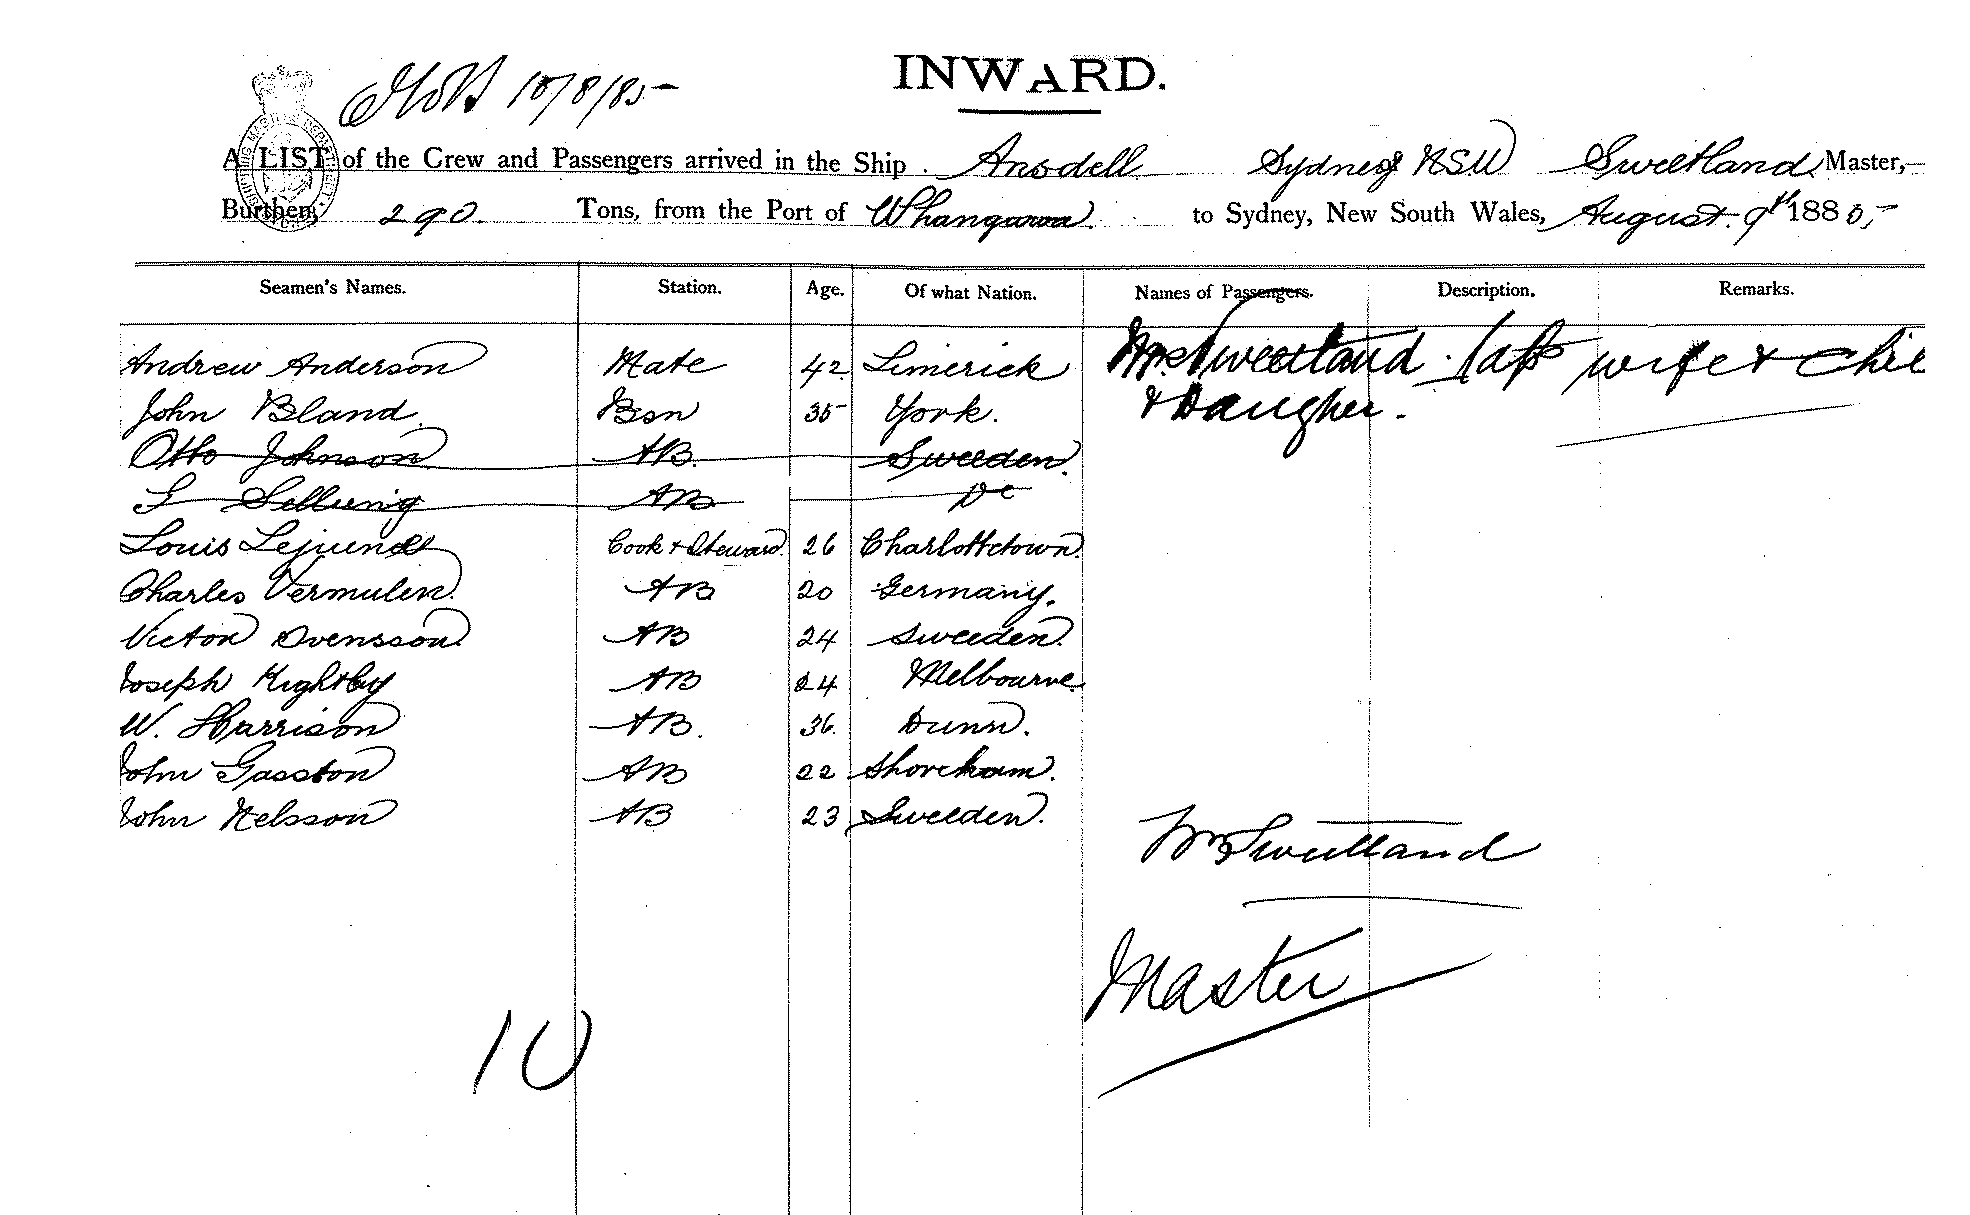 10/8/85
INWARD.
A LIST of the Crew and Passengers arrived in the Ship Ansdell Sydney of NSW Sweetland Master,
Burthen, 290. Tons, from the Port of Whangaroa to Sydney, New South Wales, August 9th 1885
Seamen's Names. Station. Age. Of what Nation. Names of Passengers. Description. Remarks.
Andrew Anderson Mate 42 Limerick Mrs Sweetland Capt wife & Chil
John Bland Bsn 35 York. & Daugher.
Otto Johnson AB. Sweeden.
AB Do
Louis Lejeunde Cook & Steward 26 Charlottetown
Charles Vermulen. AB 20 Germany.
Victor Svensson AB 24 Sweeden.
Joseph Kightley AB 24 Melbourne
W. Harrison AB. 36.
John Gasston AB 22 Shoreham.
John Nelsson AB 23 Sweeden.
Wm Sweetland
Master
10